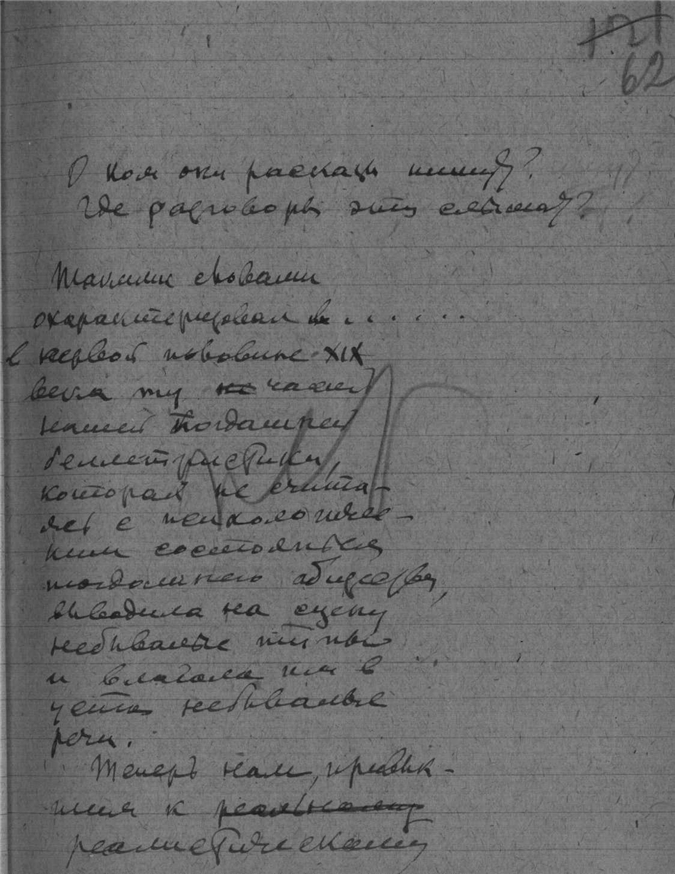 121
62
О ком они расказы пишут?
Где разговоры эти слышат?
Такими словами
охарактеризовал в. . . . . .
в первой половине XIX
века ту не часть
нашей тогдашней
беллетристики,
которая не счита-
ясь с психологичес-
ким состоянием
тогдашнего общества,
выводила на сцену
небывалые типы
и влагала им в
уста небывалые
речи.
Теперь нам, привык-
шим к реальному
реалистическому